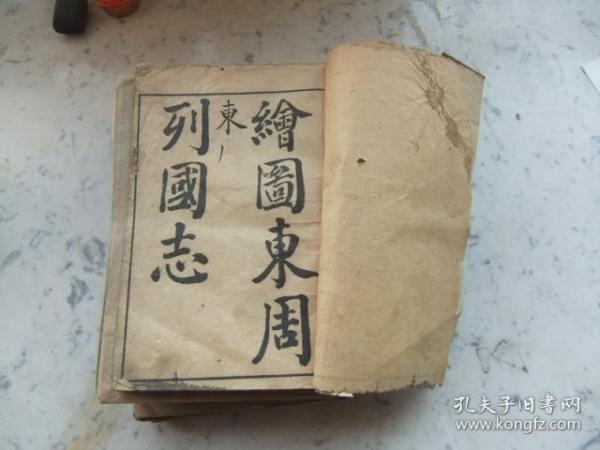 繪圖東周
列國志
東
孔夫子旧书网
www.kongfz.com